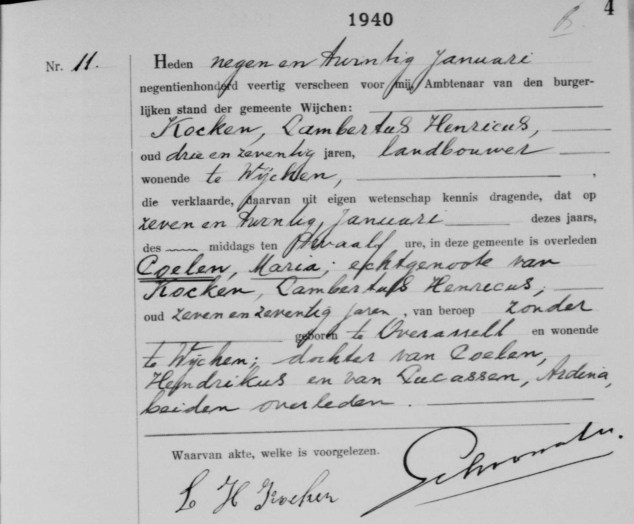 1940
4
Nr. 11.
Heden negen en twintig Januari
negentienhonderd veertig verscheen voor mij, Ambtenaar van den burger-
lijken stand der gemeente Wijchen:
Kocken, Lambertus Henricus,
oud drie en zeventig jaren, landbouwer
wonende te Wijchen,
die verklaarde, daarvan uit eigen wetenschap kennis dragende, dat op
zeven en twintig Januari dezes jaars,
des middags ten twaalf ure, in deze gemeente is overleden
Coelen, Maria; echtgenoote van
Kocken, Lambertus Henricus,
oud zeven en zeventig jaren, van beroep zonder
geboren te Overasselt en wonende
te Wijchen; dochter van Coelen,
Hendrikus en van Lucassen, Ardina,
beiden overleden.
Waarvan akte, welke is voorgelezen.
L H Kocken